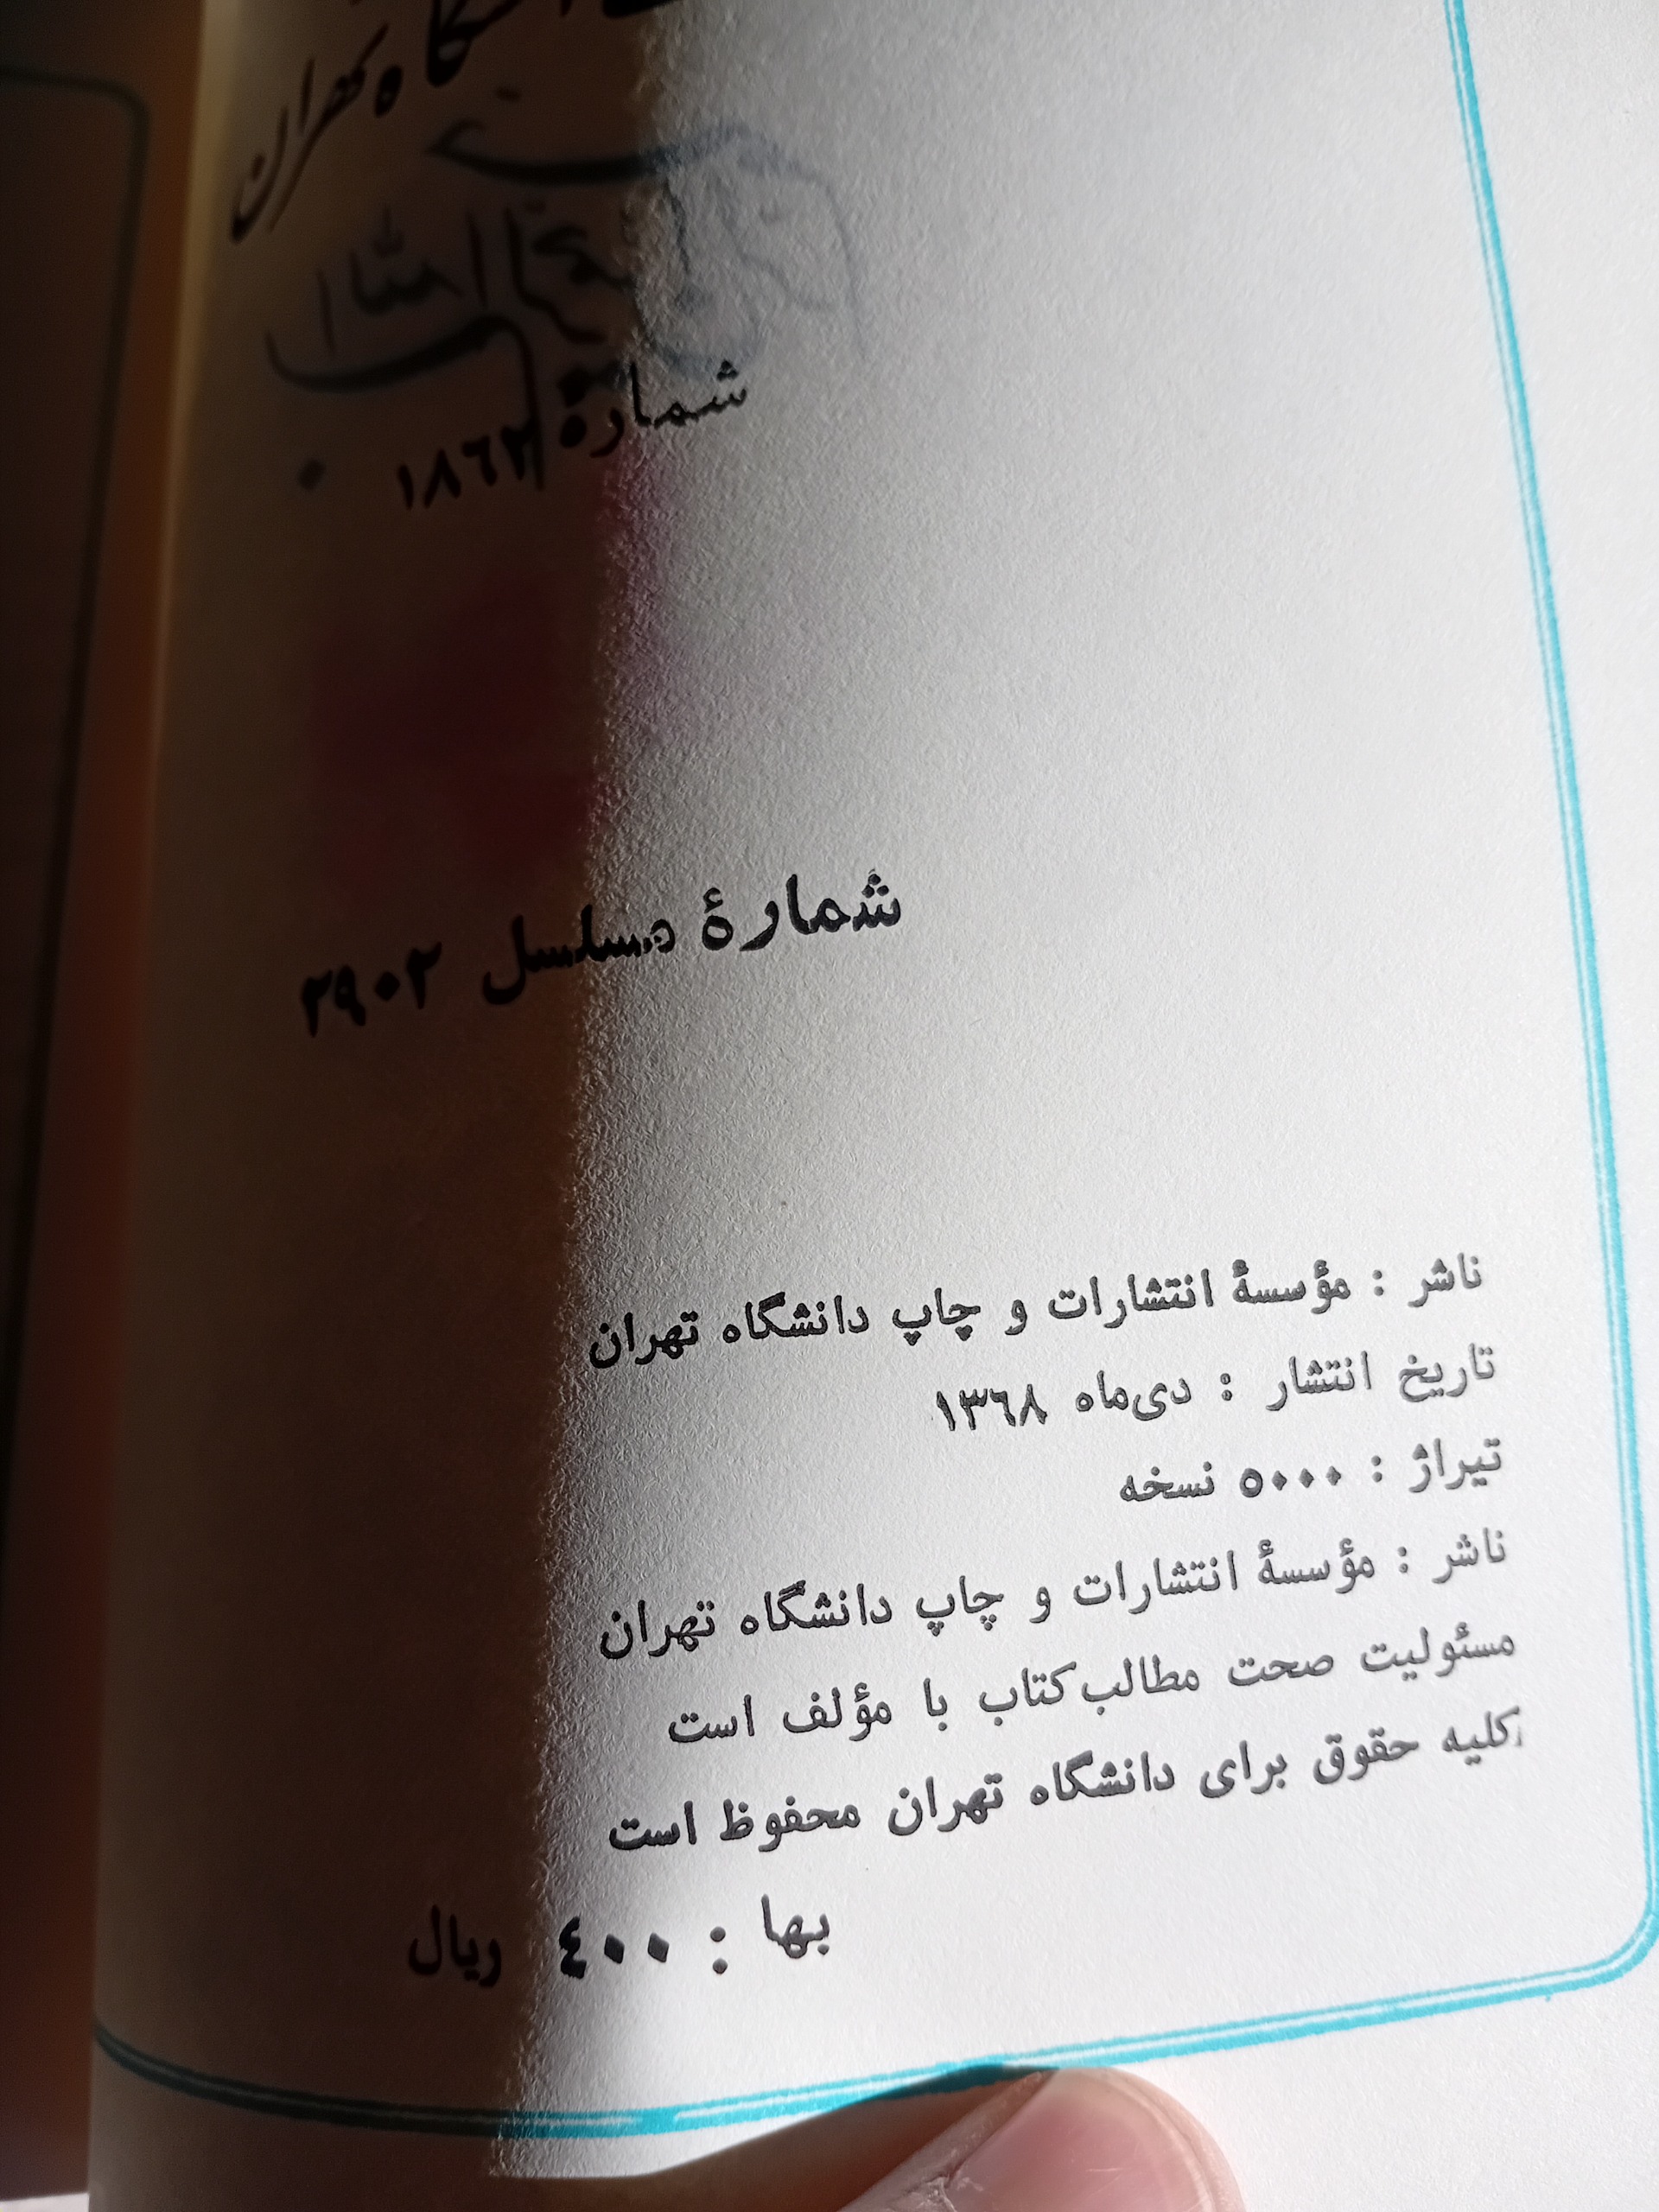 تهران
شمارهٔ ۱۸۶۲
شمارهٔ مسلسل ۲۹۰۲
ناشر : مؤسسهٔ انتشارات و چاپ دانشگاه تهران
تاریخ انتشار : دی‌ماه ۱۳۶۸
تیراژ : ۵۰۰۰ نسخه
ناشر : مؤسسهٔ انتشارات و چاپ دانشگاه تهران
مسئولیت صحت مطالب کتاب با مؤلف است
کلیه حقوق برای دانشگاه تهران محفوظ است
بها : ۴۰۰ ریال